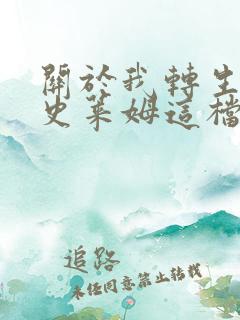 關於我轉生
史萊姆這檔
追路
未經同意禁止轉載